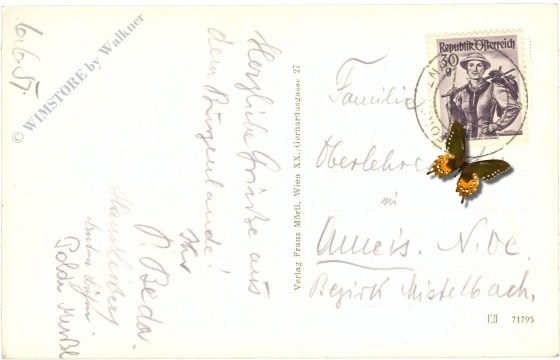 6.6.57.
© WIMSTORE by Walkner
Herzliche Grüße aus
dem Burgenlande!
Ihr
P. Beda.
Poldi
Verlag Franz Mörtl, Wien XX., Gerhardusgasse 27
Republik Österreich
30 g
Familie
Oberlehrer
in
Ameis. N. Oe.
Bezirk Mistelbach.
71795